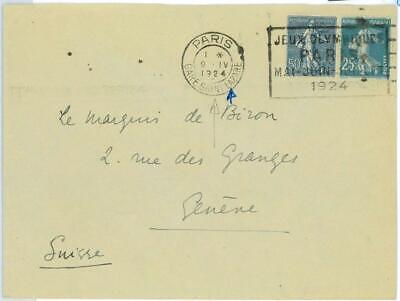 PARIS
1 *
9 - IV
1924
GARE SAINT LAZARE
JEUX OLYMPIQUES
PARIS
MAI-JUIN-
1924
50
25
Le marquis de Biron
2. rue des Granges
Genève
Suisse